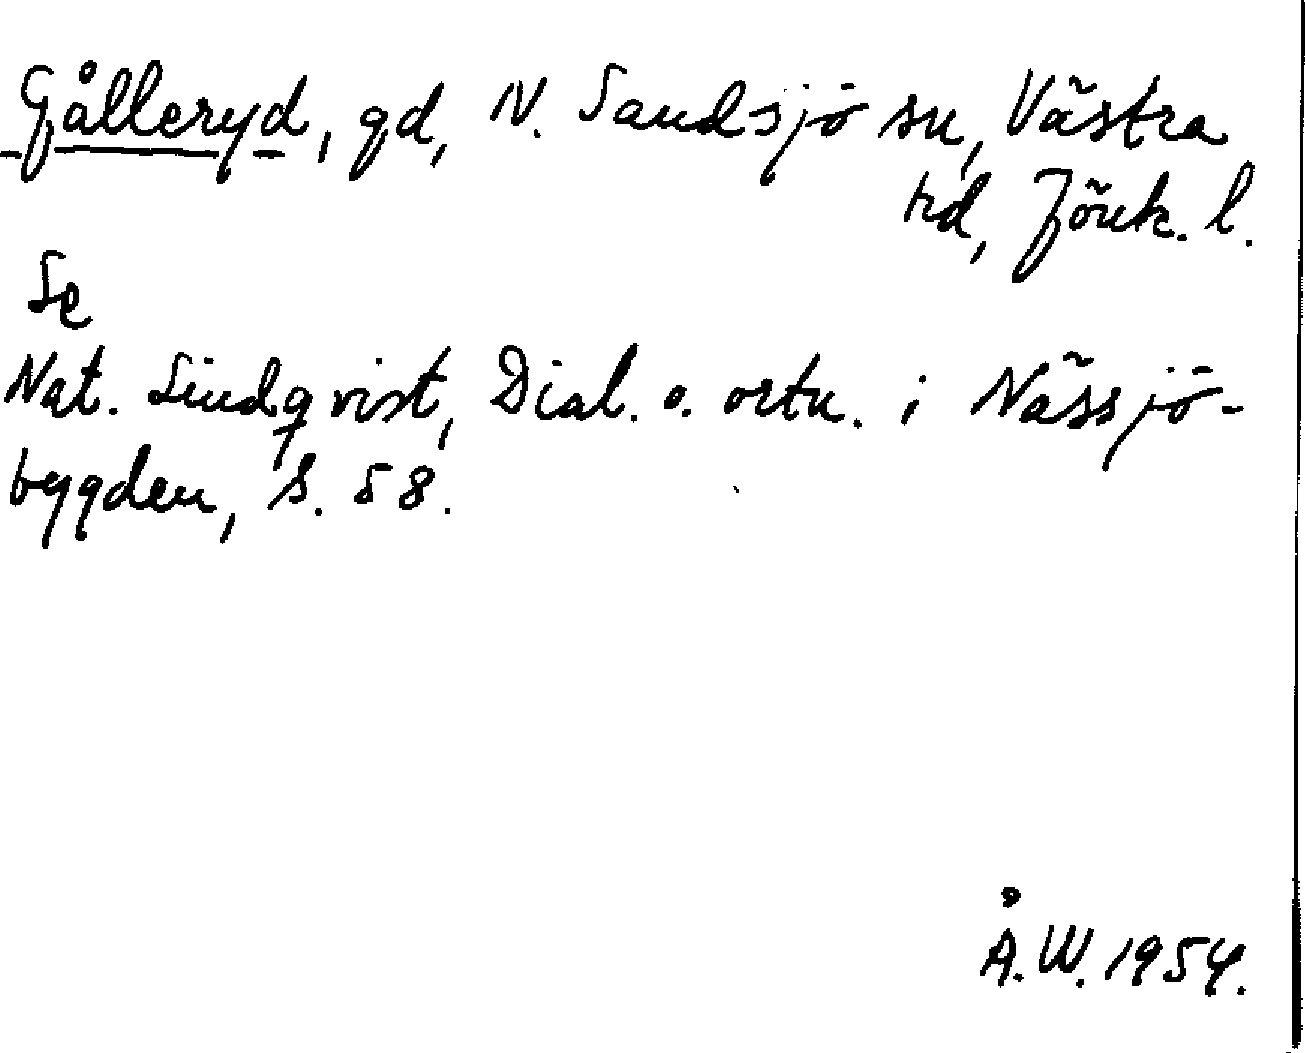 Gålleryd, gd, N. Sandsjö sn, Västra
hd, Jönk. l.
Se
Nat. Lindqvist, Dial. o. ortn. i Nässjö-
bygden, s. 58.
Å. W. 1954.